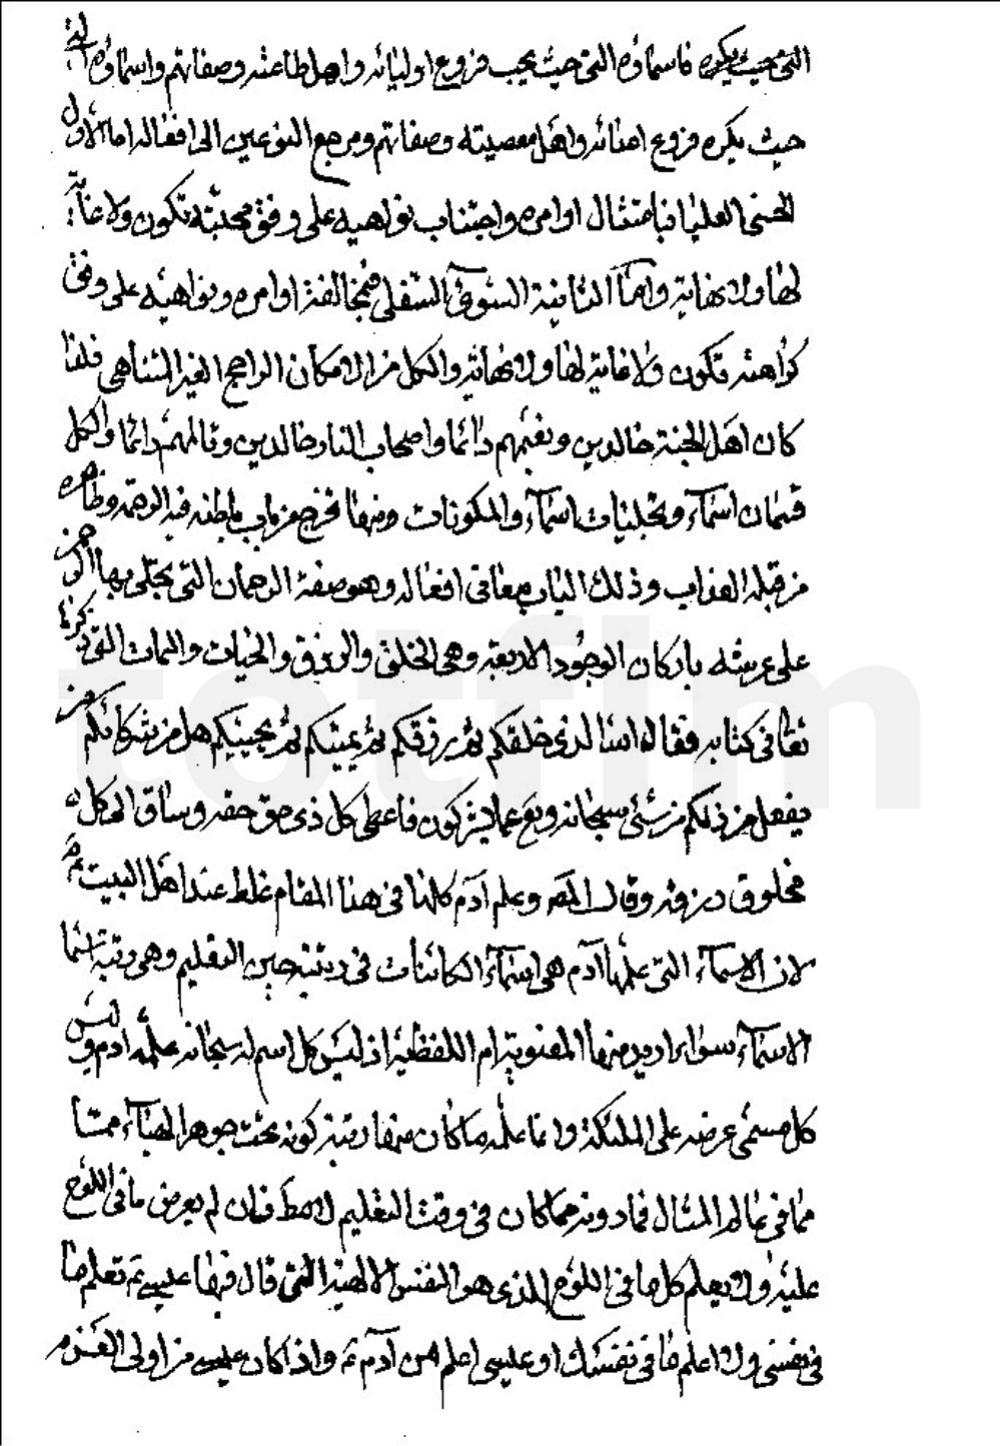 التى حيث يكره فاسماؤه التى حيث يحب فروع اوليائه واهل طاعته وصفاتهم واسماؤه التى
حيث يكره فروع اعدائه واهل معصيته وصفاتهم ومرجع النوعين الى افعاله اما الاول
الحسنى العليا فبامتثال اوامره واجتناب نواهيه على وفق محبته تكون ولا غاية
لها ولا نهاية واما الثانية السوئى السفلى فبمخالفة اوامره ونواهيه على وفق
كراهته تكون ولا غاية لها ولا نهاية والكل من الامكان الراجح الغير المتناهى فلذا
كان اهل الجنة خالدين ونعيمهم دائما واصحاب النار خالدين وتالمهم دائما والكل
قسمان اسماء وتجليات اسماء والمكونات ومنها تخرج من باب باطنه فيه الرحمة وظاهره
من قبله العذاب وذلك الباب معانى افعاله وهو صفة الرحمان التى تجلى بها الرحمن
على عرشه باركان الوجود الاربعة وهى الخلق والرزق والحيات والممات التى ذكرها
تعالى فى كتابه فقال الله الذى خلقكم ثم رزقكم ثم يميتكم ثم يحييكم هل من شركائكم من
يفعل من ذلكم من شئ سبحانه وتع عما يشركون فاعطى كل ذى حق حقه وساق الى كل
مخلوق رزقه وقال المص وعلم ادم كلها فى هذا المقام غلط عند اهل البيت ع
لان الاسماء التى علمها ادم هى اسماء الكائنات فى رتبة حين التعليم وهى رتبة
الاسماء سواء اريد منها المعنوية ام اللفظية اذ ليس كل اسم له سبحانه علمه ادم وليس
كل مسمى عرضه على الملئكة وانما علمه ما كان منها رتبة كونه تحت جوهر الهباء مما
مما فى عالم المثال فما دونه مما كان فى وقت التعليم لا مط فان لم يعرض ما فى اللوح
عليه ولا يعلم كل ما فى اللوح الذى هو النفس الالهية التى قال فيها عيسى ع تعلم ما
فى نفسى ولا اعلم ما فى نفسك او عيسى اعلم من ادم ع واذا كان عيسى من اولى العزم